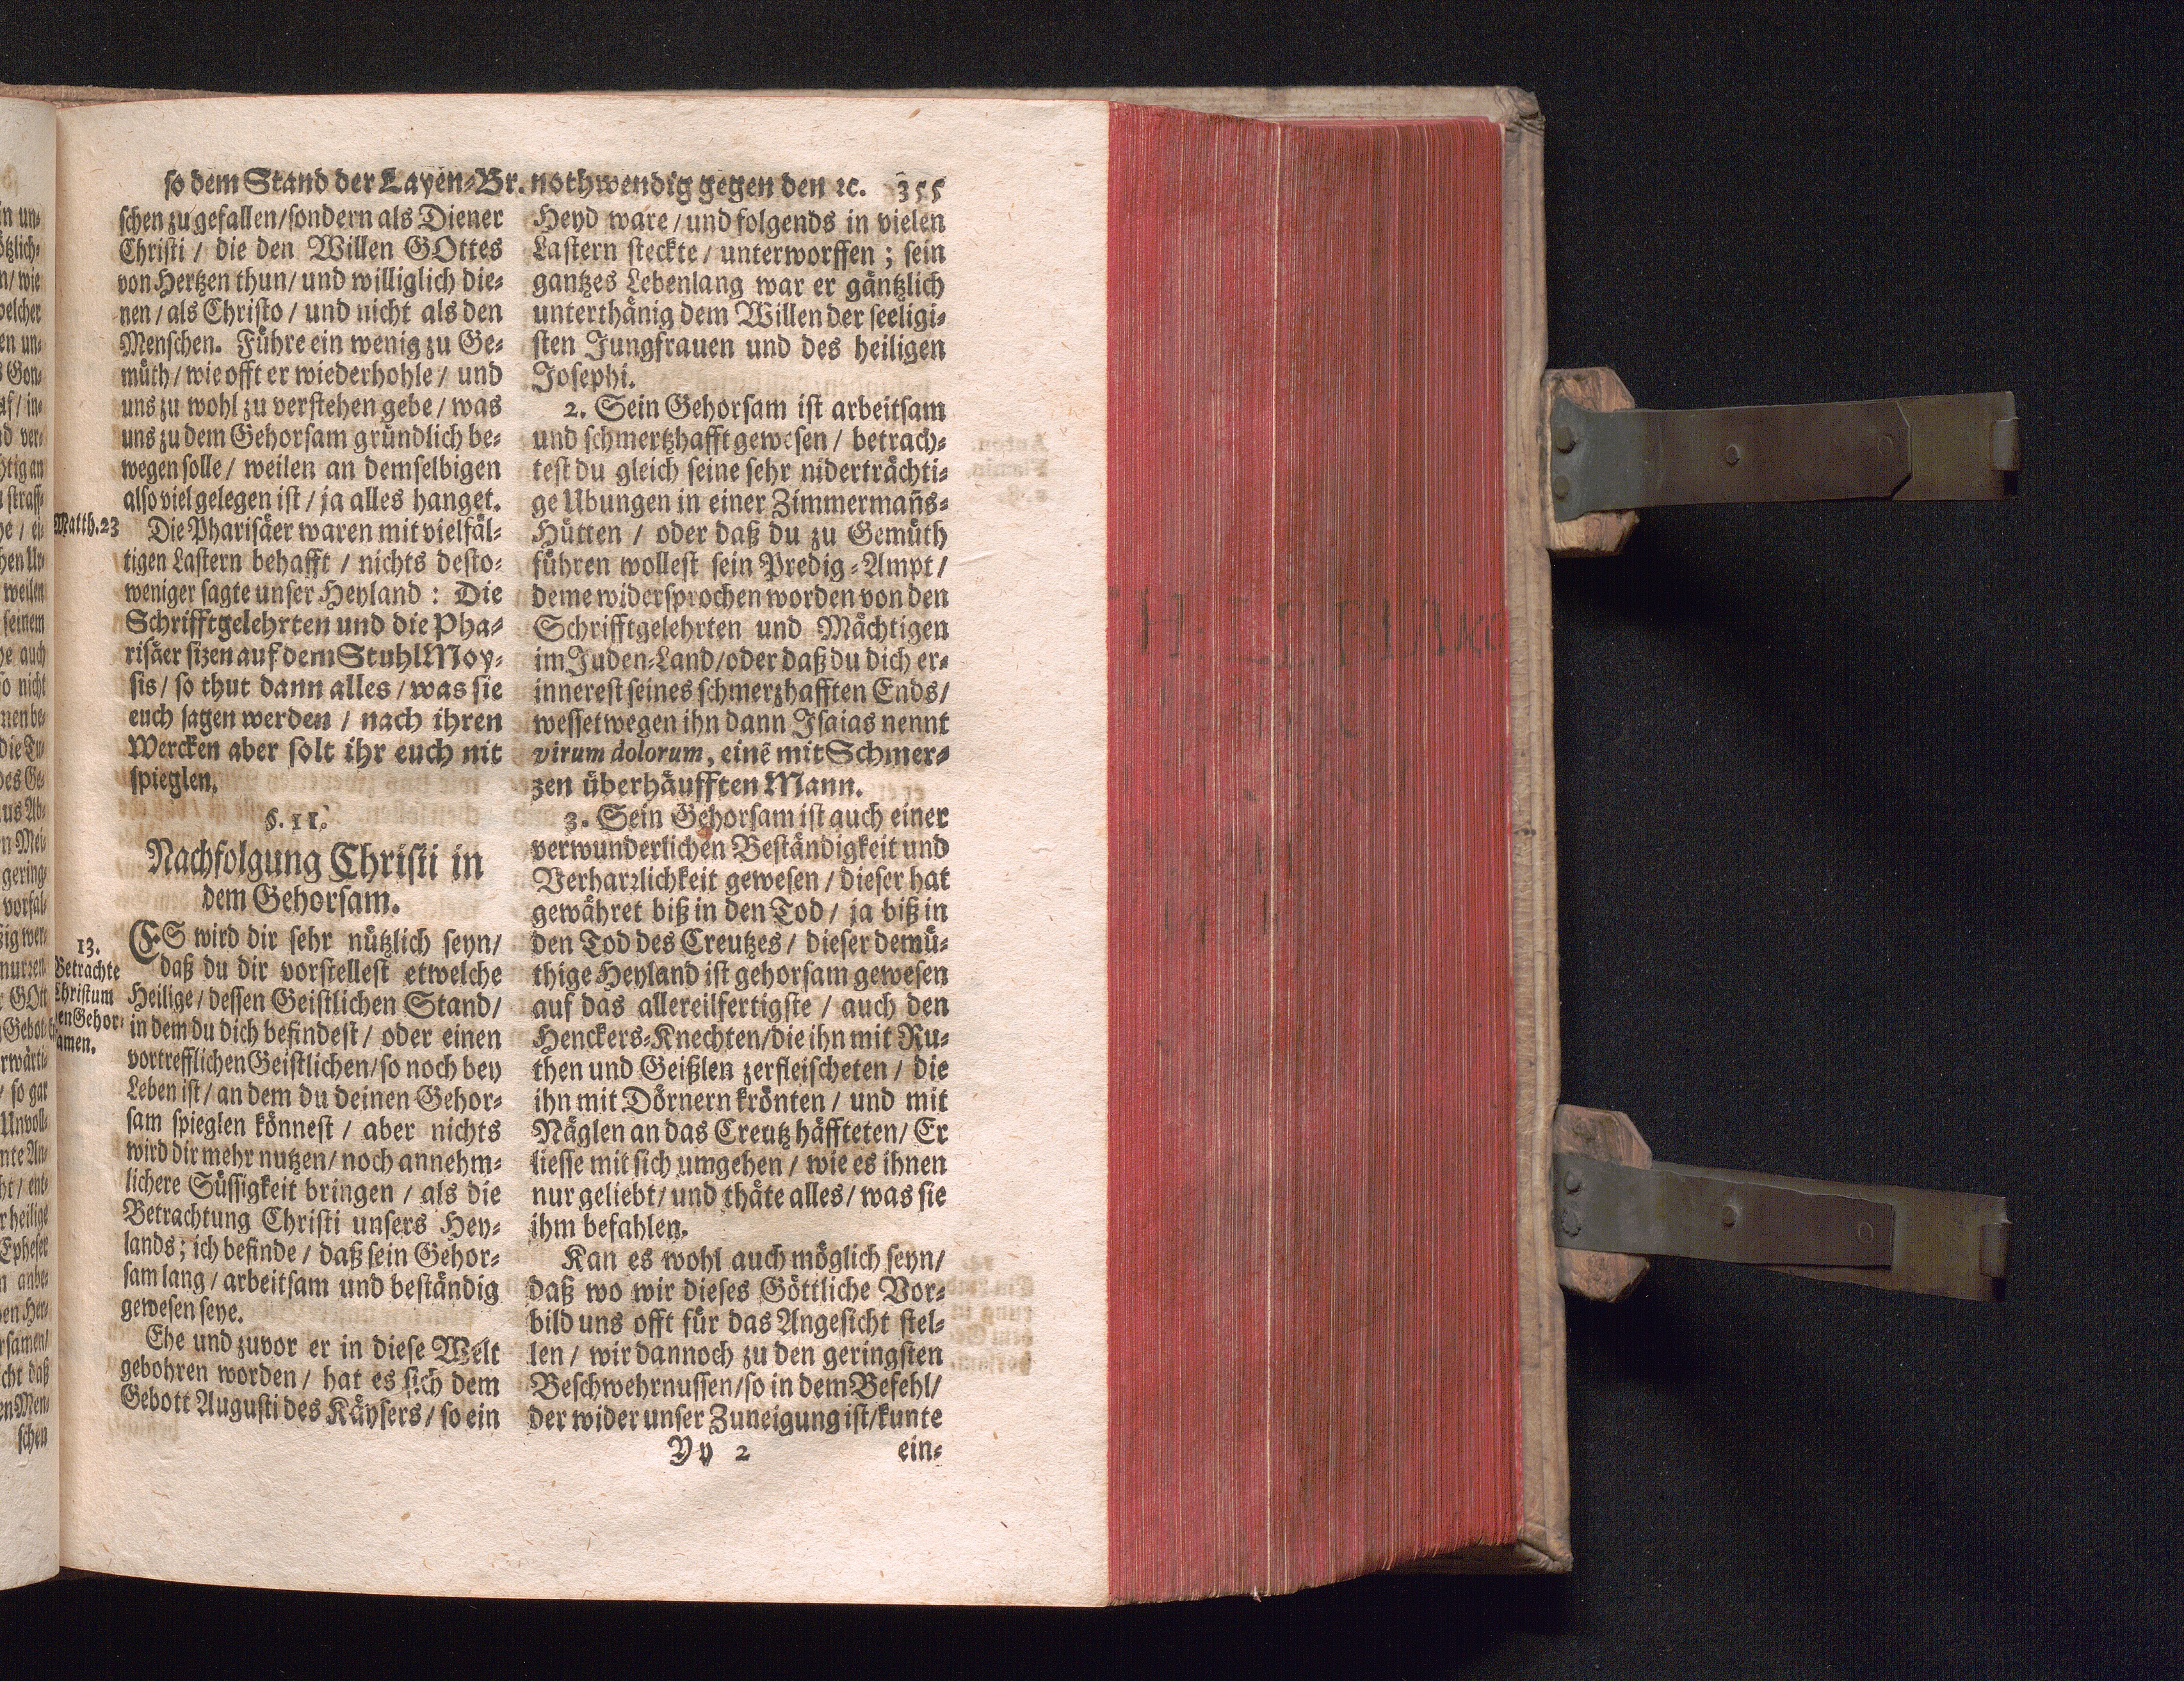 so dem Stand der Layen-Br. nothwendig gegen den ꝛc. 355
schen zu gefallen/sondern als Diener
Christi / die den Willen GOttes
von Hertzen thun/ und williglich die-
nen / als Christo / und nicht als den
Menschen. Führe ein wenig zu Ge-
müth / wie offt er wiederhohle / und
uns zu wohl zu verstehen gebe / was
uns zu dem Gehorsam gründlich be-
wegen solle / weilen an demselbigen
also viel gelegen ist / ja alles hanget.
Matth. 23
Die Pharisäer waren mit vielfäl-
tigen Lastern behafft / nichts desto-
weniger sagte unser Heyland : Die
Schrifftgelehrten und die Pha-
risäer sizen auf dem Stuhl Moy-
sis / so thut dann alles / was sie
euch sagen werden / nach ihren
Wercken aber solt ihr euch nit
spieglen.
§. 11.
Nachfolgung Christi in
dem Gehorsam.
13.
Betrachte
Christum
den Gehor-
samen.
ES wird dir sehr nützlich seyn/
daß du dir vorstellest etwelche
Heilige / dessen Geistlichen Stand/
in dem du dich befindest / oder einen
vortrefflichen Geistlichen/so noch bey
Leben ist / an dem du deinen Gehor-
sam spieglen könnest / aber nichts
wird dir mehr nutzen/ noch annehm-
lichere Süssigkeit bringen / als die
Betrachtung Christi unsers Hey-
lands ; ich befinde / daß sein Gehor-
sam lang / arbeitsam und beständig
gewesen seye.
Ehe und zuvor er in diese Welt
gebohren worden / hat es sich dem
Gebott Augusti des Käysers / so ein
Heyd ware / und folgends in vielen
Lastern steckte / unterworffen ; sein
gantzes Lebenlang war er gäntzlich
unterthänig dem Willen der seeligi-
sten Jungfrauen und des heiligen
Josephi.
2. Sein Gehorsam ist arbeitsam
und schmertzhafft gewesen / betrach-
test du gleich seine sehr niderträchti-
ge Ubungen in einer Zimmermañs-
Hütten / oder daß du zu Gemüth
führen wollest sein Predig-Ampt /
deme widersprochen worden von den
Schrifftgelehrten und Mächtigen
im Juden-Land/oder daß du dich er-
innerest seines schmerzhafften Ends/
wessetwegen ihn dann Isaias nennt
virum dolorum, einē mit Schmer-
zen überhäufften Mann.
3. Sein Gehorsam ist auch einer
verwunderlichen Beständigkeit und
Verharꝛlichkeit gewesen / dieser hat
gewähret biß in den Tod / ja biß in
den Tod des Creutzes / dieser demü-
thige Heyland ist gehorsam gewesen
auf das allereilfertigste / auch den
Henckers-Knechten/die ihn mit Ru-
then und Geißlen zerfleischeten / die
ihn mit Dörnern krönten / und mit
Näglen an das Creutz häffteten/ Er
liesse mit sich umgehen / wie es ihnen
nur geliebt/ und thäte alles / was sie
ihm befahlen.
Kan es wohl auch möglich seyn/
daß wo wir dieses Göttliche Vor-
bild uns offt für das Angesicht stel-
len / wir dannoch zu den geringsten
Beschwehrnussen/so in dem Befehl/
der wider unser Zuneigung ist/kunte
Yy 2
ein-